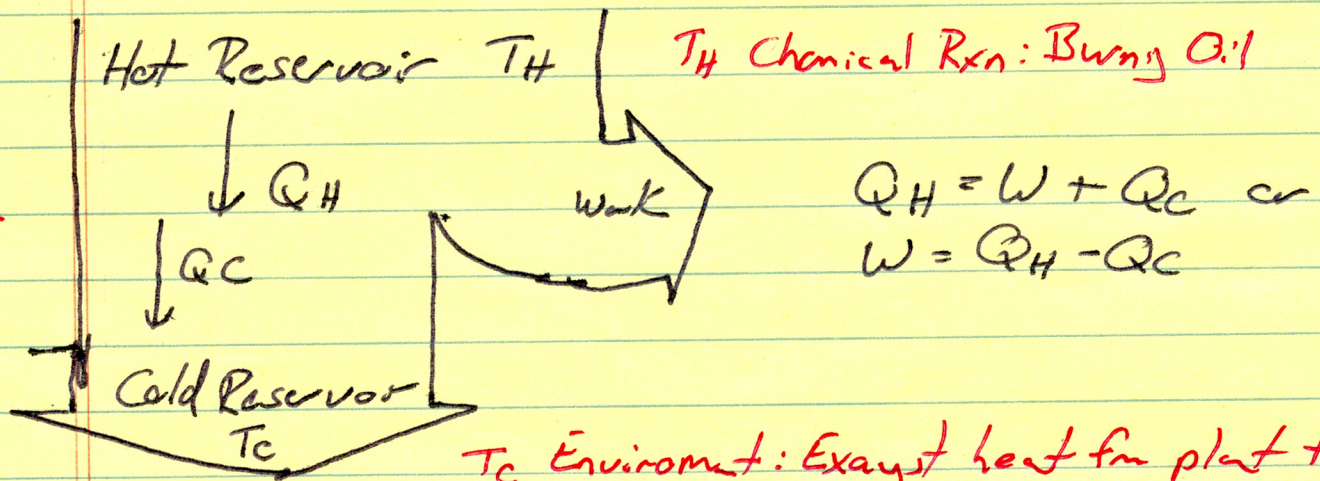 Hot Reservoir TH
TH Chemical Rxn: Burng Oil
QH
Work
QH = W + QC or
QC
W = QH - QC
Cold Reservor
TC
TC Enviromnt: Exayst heat fm plat